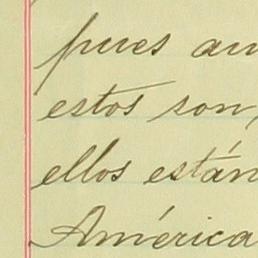 pues au
estos son,
ellos están
América